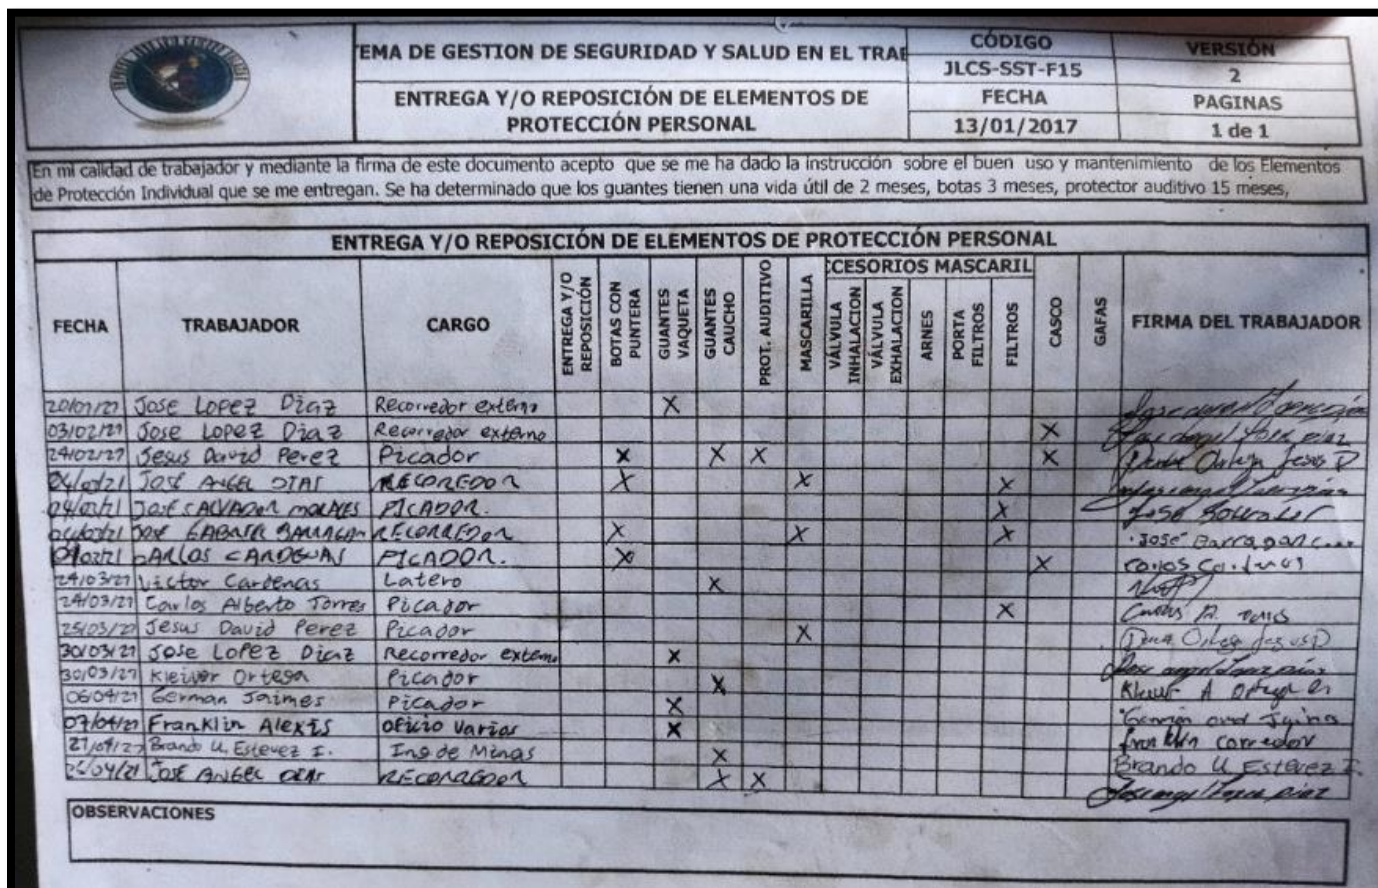 EMA DE GESTION DE SEGURIDAD Y SALUD EN EL TRA
CÓDIGO
VERSIÓN
JLCS-SST-F15
2
ENTREGA Y/O REPOSICIÓN DE ELEMENTOS DE
PROTECCIÓN PERSONAL
FECHA
PAGINAS
13/01/2017
1 de 1
En mi calidad de trabajador y mediante la firma de este documento acepto que se me ha dado la instrucción sobre el buen uso y mantenimiento de los Elementos
de Protección Individual que se me entregan. Se ha determinado que los guantes tienen una vida útil de 2 meses, botas 3 meses, protector auditivo 15 meses,
ENTREGA Y/O REPOSICIÓN DE ELEMENTOS DE PROTECCIÓN PERSONAL
FECHA
TRABAJADOR
CARGO
ENTREGA Y/O
REPOSICIÓN
BOTAS CON
PUNTERA
GUANTES
VAQUETA
GUANTES
CAUCHO
PROT. AUDITIVO
MASCARILLA
CCESORIOS MASCARIL
VÁLVULA
INHALACION
VÁLVULA
EXHALACION
ARNES
PORTA
FILTROS
FILTROS
CASCO
GAFAS
FIRMA DEL TRABAJADOR
Jose Lopez Diaz Recorredor externo X
03/02/21 Jose Lopez Diaz Recorredor externo X
24/02/21 Jesus David Perez Picador X X X X
JOSE ANGEL DIAS RECORREDOR X X X
JOSE SALVADOR MORALES PICADOR. X
JOSE GABRIEL BARRAGAN RECORREDOR X X X José Barragan
CARLOS CARDENAS PICADOR. X X
24/03/21 Victor Cardenas Latero X
24/03/21 Carlos Alberto Torres Picador X Carlos A.
25/03/21 Jesus David Perez Picador X
30/03/21 Jose Lopez Diaz Recorredor externo X
30/03/21 Kleiver Ortega Picador X
06/04/21 German Jaimes Picador X
07/04/21 Franklin Alexis Oficio Varios X Franklin corredor
21/04/21 Brando U. Estevez I. Ing de Minas X Brando U Estevez I.
JOSE ANGEL DIAS RECORREDOR X X
OBSERVACIONES